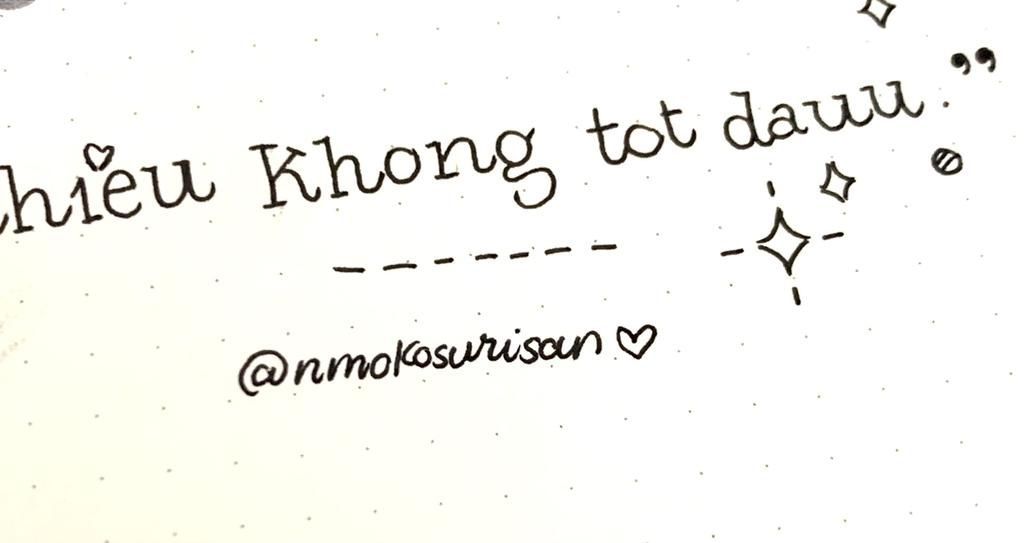 hieu Khong tot dauu.”
@nmokosurisan♡